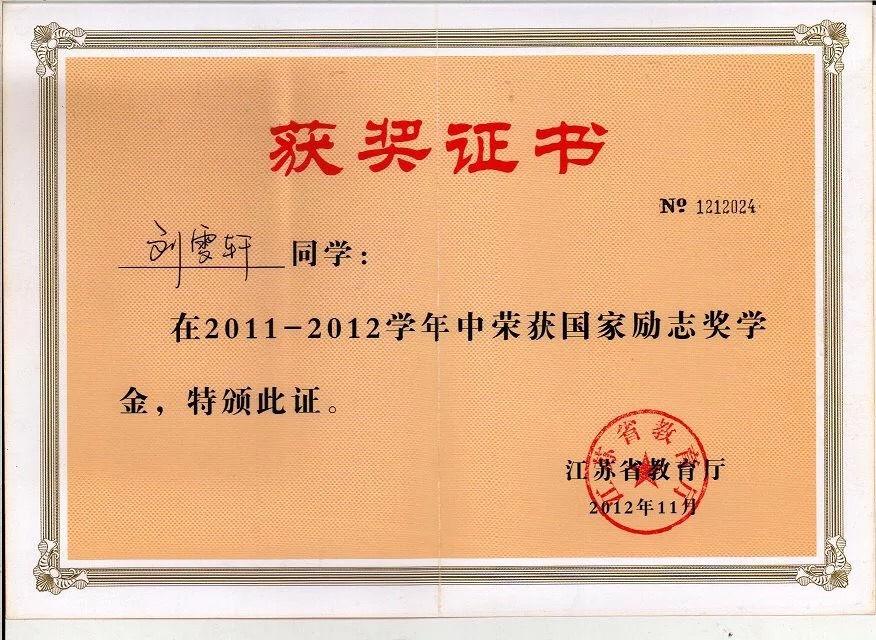 获奖证书
№ 1212024
刘雯轩 同学：
在2011-2012学年中荣获国家励志奖学
金，特颁此证。
江苏省教育厅
江苏省教育厅
2012年11月